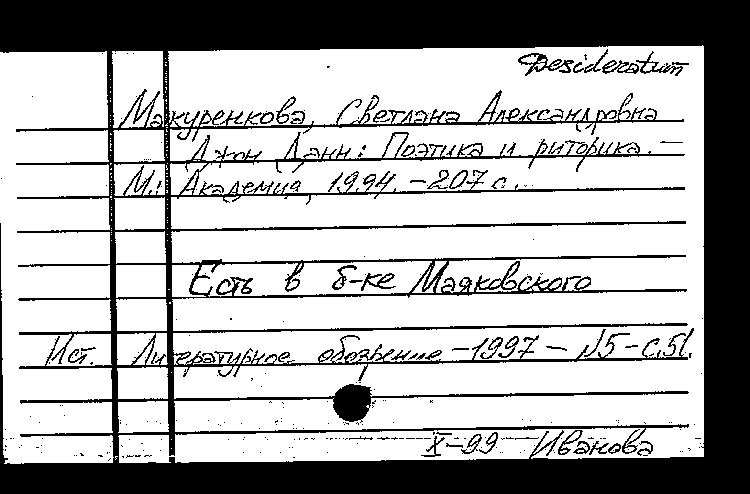 Desideratum
Макуренкова, Светлана Александровна
Джон Данн: Поэтика и риторика. —
М.: Академия, 1994. – 207 с.
Есть в б-ке Маяковского
Ист. Литературное обозрение – 1997 – N5 – с.51.
X–99 Иванова